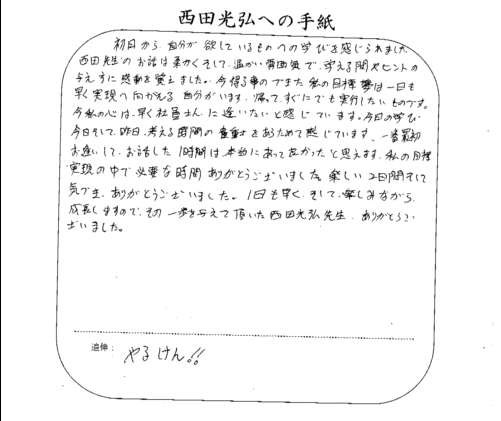 西田光弘への手紙
初日から、自分が欲しているものへの学びを感じられました。
西田先生のお話は柔かくそして、温かい雰囲気で、考える間やヒントの
与え方に感動を覚えました。今得る事のできた私の目標 夢は一日も
早く実現へ向かえる自分がいます。帰って、すぐにでも実行したいものです。
今私の心は、早く社員さんに逢いたいと感じています。今日の学び
今日そして、昨日、考える時間の重要さをあらためて感じています。一番最初
お逢いして、お話した1時間は本当にあって良かったと思えます。私の目標
実現の中で必要な時間ありがとうございました。楽しい2日間そして
気づき、ありがとうございました。1日も早く、そして、楽しみながら、
成長しますので、その一歩を与えて頂いた西田光弘先生、ありがとうござ
いました。
追伸：
やるけん!!